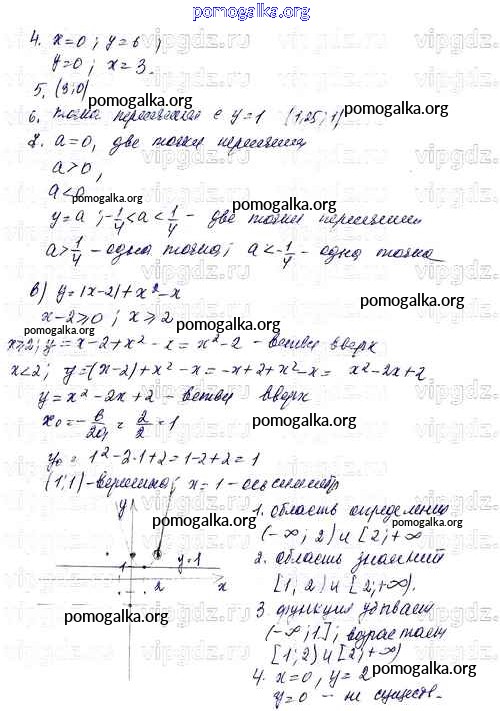 pomogalka.org
4. x=0; y=6;
y=0; x=3.
5. (3;0)
pomogalka.org
6. точка пересечения с y=1 (1,25; 1)
7. a=0, две точки пересечения
a>0,
pomogalka.org
a<0
pomogalka.org
y=a; -1/4<a<1/4 - две точки пересечения
a>1/4 - одна точка; a<-1/4 - одна точка
pomogalka.org
в) y=|x-2|+x²-x
x-2≥0; x≥2
pomogalka.org
x≥2; y=x-2+x²-x=x²-2 - ветви вверх
x<2; y=-(x-2)+x²-x=-x+2+x²-x= x²-2x+2
y=x²-2x+2 - ветви вверх
pomogalka.org
x₀=-b/2a=2/2=1
pomogalka.org
y₀=1²-2·1+2=1-2+2=1
pomogalka.org
(1;1)-вершина; x=1-ось симметр
y
1. область определения
pomogalka.org
pomogalka.org
(-∞; 2) и [2;+∞
1
y=1
2. область значений
2
x
[1; 2) и [2;+∞).
pomogalka.org
pomogalka.org
3. функция убывает
(-∞;1]; возрастает
[1;2) и [2;+∞)
pomogalka.org
4. x=0, y=2
y=0 - не существ.